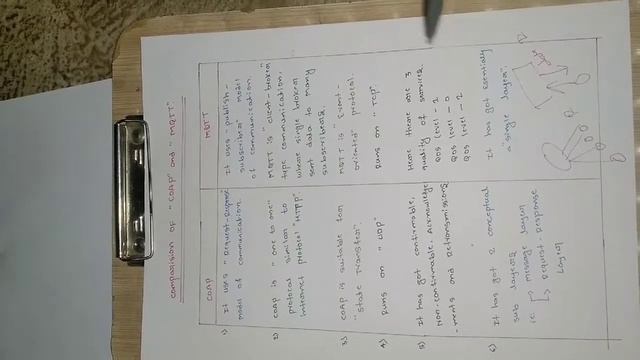 comparision of "COAP" and "MQTT"
COAP
MQTT
1) It uses "Request-Response"
model of communication.
It uses - publish -
subscriber model
of communication.
2) COAP is "one to one"
protocol similar to
internet protocol "HTTP"
MQTT is "client-broker"
type communication.
where single broker
sent data to many
subscribers.
3) COAP is suitable for
"State Transfer".
MQTT is Event-
oriented protocol.
4) Runs on "UDP"
Runs on "TCP"
5) It has got confirmable,
Non-confirmable. Acknowledge
-ments and Retransmissions
Here there are 3
quality of services.
QOS level - 1
QOS level - 0
QOS level - 2
6) It has got 2 conceptual
sub layers
ie. message layer
Request-Response
Layer
It has got essentially
a "single layer".